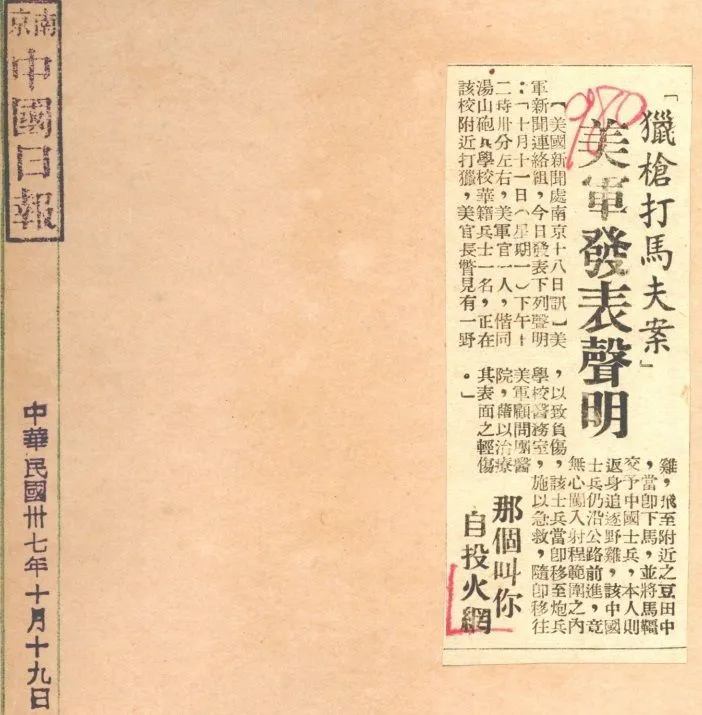 「獵槍打馬夫案」
美軍發表聲明
980
【美國新聞處南京十八日訊】美
軍新聞連絡組，今日發表下列聲明
：「十月十一日（星期一）下午十
二時卅分左右，美軍官一人，偕同
湯山砲兵學校華籍兵士一名，正在
該校附近打獵，美官長瞥見有一野
雞，飛至附近之豆田中
，當卽下馬，並將馬韁
交予中國士兵，本人則
返身追逐野雞，該中國
士兵仍沿公路前進，竟
無心闖入射程範圍之內
，以致負傷，該士兵當卽移至炮兵
學校醫務室，施以急救，隨卽移往
美軍顧問團醫
院，藉以治療
其表面之輕傷
。」
那個叫你
自投火網
南京
中國日報
中華民國卅七年十月十九日